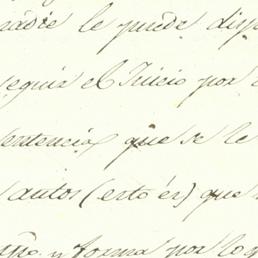 nadie le puede disp
seguir el Juicio por
sentencia que se le
autos (esto és) que
y forma por lo